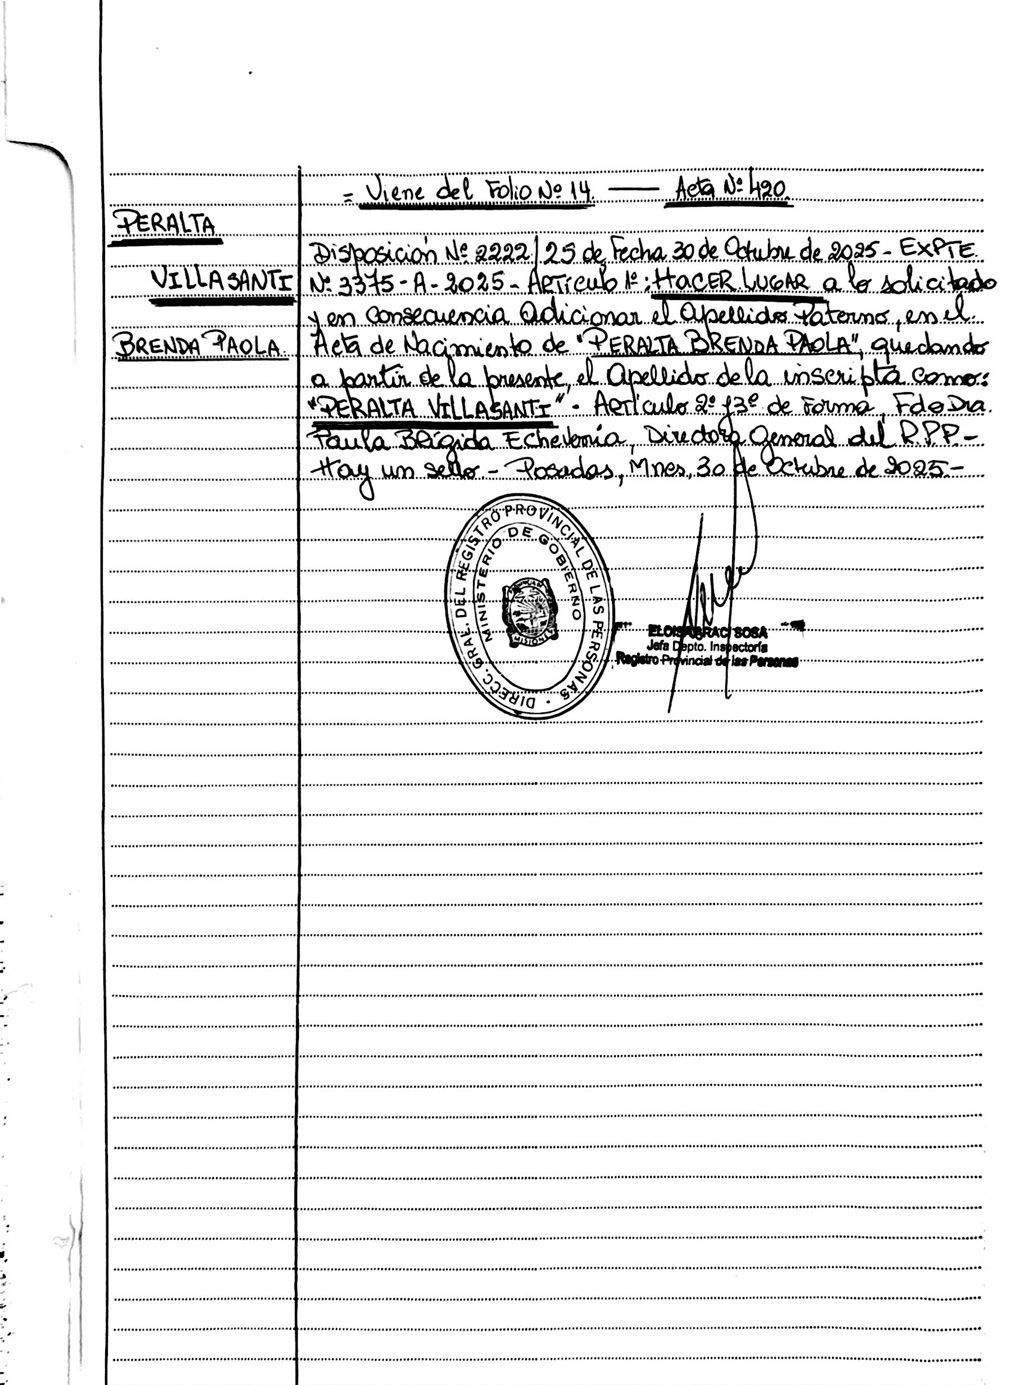 = Viene del Folio Nº 14. — Acta Nº 420.
PERALTA
VILLASANTI
BRENDA PAOLA.
Disposición Nº 2222/25 de Fecha 30 de Octubre de 2025 - EXPTE.
Nº 3375 - A - 2025 - Artículo 1º: HACER LUGAR a lo solicitado
y en consecuencia adicionar el Apellido Paterno, en el
Acta de Nacimiento de "PERALTA BRENDA PAOLA", quedando
a partir de la presente, el Apellido de la inscripta como:
"PERALTA VILLASANTI" - Artículo 2º y 3º de Forma, Fdo Dra.
Paula Brígida Echeverría, Directora General del R.P.P -
Hay un sello - Posadas, Mnes, 30 de Octubre de 2025 -
DIRECC. GRAL. DEL REGISTRO PROVINCIAL DE LAS PERSONAS
MINISTERIO DE GOBIERNO
MISIONES
SOSA
Jefa Depto. Inspectoría
Registro Provincial de las Personas